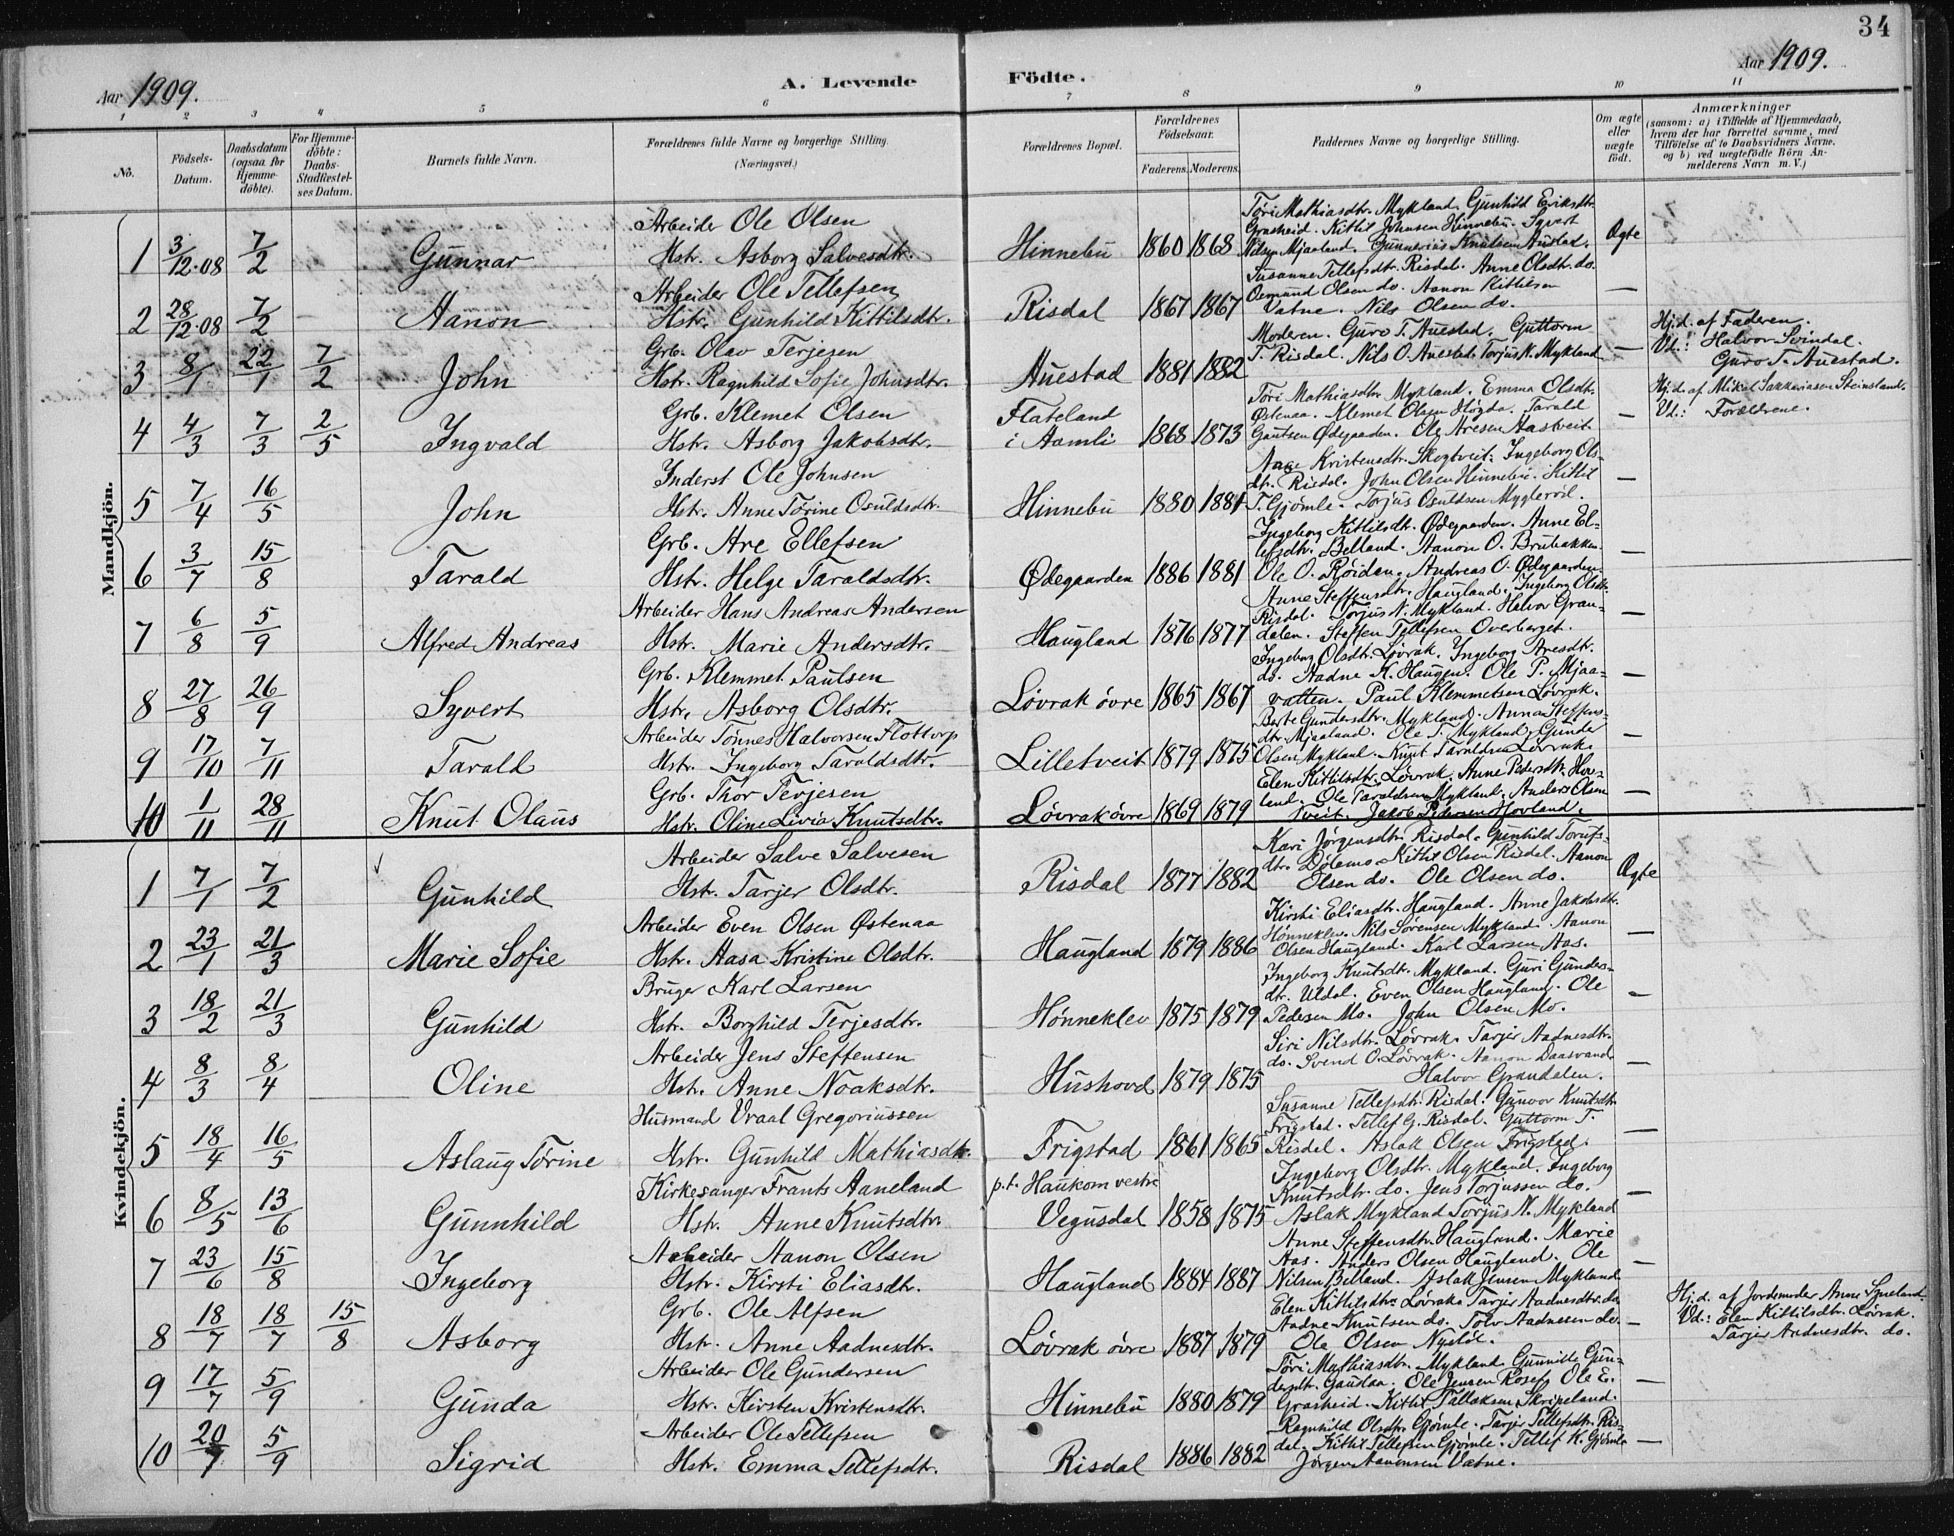 34
Aar 1909. A. Levende Födte. Aar 1909.
1 2 3 4 5 6 7 8 9 10 11
No. Födsels-Datum. Daabsdatum (ogsaa for Hjemmedöbte). For Hjemmedöbte: Daabs-Stadfæstelses Datum. Barnets fulde Navn. Forældrenes fulde Navne og borgerlige Stilling. (Næringsvei.) Forældrenes Bopæl. Forældrenes Födselsaar. Faderens. Moderens. Faddernes Navne og borgerlige Stilling. Om ægte eller uægte födt. Anmærkninger (saasom: a) i Tilfælde af Hjemmedaab, hvem der har forrettet samme, med Tilföielse af to Daabsvidners Navne, og b) ved uegtefödte Börn Anmelderens Navn m. V.)
Mandkjön.
1 3/12.08 7/2 Gunnar
Arbeider Ole Olsen
Hstr. Asborg Salvesdtr.
Hinnebu 1860 1868
Töri Mathiasdtr. Mykland. Gunhild Eriksdtr.
Grasheid. Kittil Johnsen Hinnebu. Syvert
Nilsen Mjaaland. Gunnerius Knutsen Austad.
Ægte
2 28/12.08 7/2 Aanon
Arbeider Ole Tellefsen
Hstr. Gunhild Kittilsdtr.
Risdal 1867 1867
Susanne Tellefsdtr. Risdal. Anne Olsdtr. do.
Osmund Olsen do. Aanon Kittilsen
Vatne. Nils Olsen do.
—
3 8/1 22/1 7/2 John
Grb. Olav Terjesen
Hstr. Ragnhild Sofie Johnsdtr.
Auestad 1881 1882
Moderen. Guro T. Auestad. Guttorm
T. Risdal. Nils O. Auestad. Torjus N. Mykland
—
Hj.d. af Faderen.
Vd.: Halvor Svindal.
Guro T. Auestad.
4 4/3 7/3 2/5 Ingvald
Grb. Klemet Olsen
Hstr. Asborg Jakobsdtr.
Flateland
i Aamli 1868 1873
Töri Mathiasdtr Mykland. Emma Olsdtr.
Østenaa. Klemet Olsen Högda. Tarald
Gautsen Ødegaarden. Ole Aresen Aastveit
—
Hj.d. af Mikel Sakkariasen Steinsland.
Vd.: Forældrene.
5 7/4 16/5 John
Inderst Ole Johnsen
Hstr. Anne Törine Osuldsdtr.
Hinnebu 1880 1881
Aase Kristensdtr. Skogtveit. Ingeborg Ols-
dtr. Risdal. John Olsen Hinnebu. Kittil
T. Gjömle. Torjus Osuldsen
—
6 3/7 15/8 Tarald
Grb. Are Ellefsen
Hstr. Helge Taraldsdtr.
Ødegaarden 1886 1881
Ingeborg Kittilsdtr. Ødegaarden. Anne El-
lefsdtr. Belland. Aanon O. Brubakken.
Ole O. Röidan. Andreas O. Ødegaarden.
—
7 6/8 5/9 Alfred Andreas
Arbeider Hans Andreas Andersen
Hstr. Marie Andersdtr.
Haugland 1876 1877
Anne Steffensdtr. Haugland. Ingeborg Olsdtr.
Risdal. Torjus N. Mykland. Halvor Gran-
dalen. Steffen Tellefsen Overberget.
—
8 27/8 26/9 Syvert
Grb. Klemmet Paulsen
Hstr. Asborg Olsdtr.
Lövrak övre 1865 1867
Ingeborg Olsdtr. Lövrak. Ingeborg Aresdtr.
do. Aadne K. Haugen. Ole P. Mjaa-
vatten. Paul Klemmetsen Lövrak.
—
9 17/10 7/11 Tarald
Arbeider Tönnes Halvorsen Flottorp
Hstr. Ingeborg Taraldsdtr.
Lilletveit 1879 1875
Berte Gundersdtr. Mykland. Anna Steffens-
dtr. Mjaaland. Ole T. Mykland. Gunder
Olsen Mykland. Knut Taraldsen Lövrak.
—
10 1/11 28/11 Knut Olaus
Grb. Thor Terjesen
Hstr. Oline Livia Knutsdtr.
Lövrak övre 1869 1879
Elen Kittilsdtr. Lövrak. Anne Pedersdtr. Hov-
land. Ole Taraldsen Mykland. Anders Olsen
Tveit. Jakob Pedersen Hovland.
—
Kvindekjön.
1 7/1 7/2 Gunhild
Arbeider Salve Salvesen
Hstr. Tarjer Olsdtr.
Risdal 1877 1882
Kari Jörgensdtr. Risdal. Gunhild Torufs-
dtr. Dölemo. Kittil Olsen Risdal. Aanon
Olsen do. Ole Olsen do.
Ægte
2 23/1 21/3 Marie Sofie
Arbeider Even Olsen Østenaa
Hstr. Aasa Kristine Olsdtr.
Haugland 1879 1886
Kirsti Eliasdtr. Haugland. Anne Jakobsdtr.
Hönneklev. Nils Sörensen Mykland. Aanon
Olsen Haugland. Karl Larsen Aas.
—
3 18/2 21/3 Gunhild
Bruger Karl Larsen
Hstr. Borghild Terjesdtr.
Hönneklev 1875 1879
Ingeborg Knutsdtr. Mykland. Guri Gunders-
dtr. Uldal. Even Olsen Haugland. Ole
Pedersen Mo. John Olsen Mo.
—
4 8/3 8/4 Oline
Arbeider Jens Steffensen
Hstr. Anne Noaksdtr.
Hushovd 1879 1875
Siri Nilsdtr. Lövrak. Tarjer Aadnesdtr.
do. Svend O. Lövrak. Aanon Daasvand
Halvor Grandalen.
—
5 18/4 16/5 Aslaug Törine
Husmand Vraal Gregoriussen
Hstr. Gunhild Mathiasdtr.
Frigstad 1861 1865
Susanne Tellefsdtr. Risdal. Gunvor Knutsdtr.
Frigstad. Tellef G. Risdal. Guttorm T.
Risdal. Aslak Olsen Frigstad.
—
6 8/5 13/6 Gunnhild
Kirkesanger Frants Aaneland
Hstr. Anne Knutsdtr.
p.t. Haukom vestre
Vegusdal 1858 1875
Ingeborg Olsdtr. Mykland. Ingeborg
Knutsdtr. do. Jens Torjussen do.
Aslak Mykland Torjus N. Mykland
—
7 23/6 15/8 Ingeborg
Arbeider Aanon Olsen
Hstr. Kirsti Eliasdtr.
Haugland 1884 1887
Anne Steffensdtr. Haugland. Marie
Aas. Anders Olsen Haugland. Ole
Nilsen Belland. Aslak Jensen Mykland
—
8 18/7 18/7 15/8 Asborg
Grb. Ole Alfsen
Hstr. Anne Aadnesdtr.
Lövrak övre 1887 1879
Elen Kittilsdtr. Lövrak. Tarjer Aadnesdtr. do.
Aadne Knutsen do. Tolv Aadnesen do.
Ole Olsen Nystöl.
—
Hj.d. af Jordemoder Anne Syneland.
Vd.: Elen Kittilsdtr. Lövrak.
Tarjer Aadnesdtr. do.
9 17/7 5/9 Gunda
Arbeider Ole Gundersen
Hstr. Kirsten Kristensdtr.
Hinnebu 1880 1879
Töri Mathiasdtr. Mykland. Gunnild Gun-
dersdtr. Gauslaa. Ole Jensen Rosef. Ole E.
Grasheid. Kittil Tallaksen Skripeland.
—
10 20/7 5/9 Sigrid
Arbeider Ole Tellefsen
Hstr. Emma Tellefsdtr.
Risdal 1886 1882
Ragnhild Olsdtr. Gjömle. Tarjer Tellefsdtr. Ris-
dal. Kittil Tellefsen Gjömle. Tellef K. Gjömle
Jörgen Aanonsen Vatne.
—